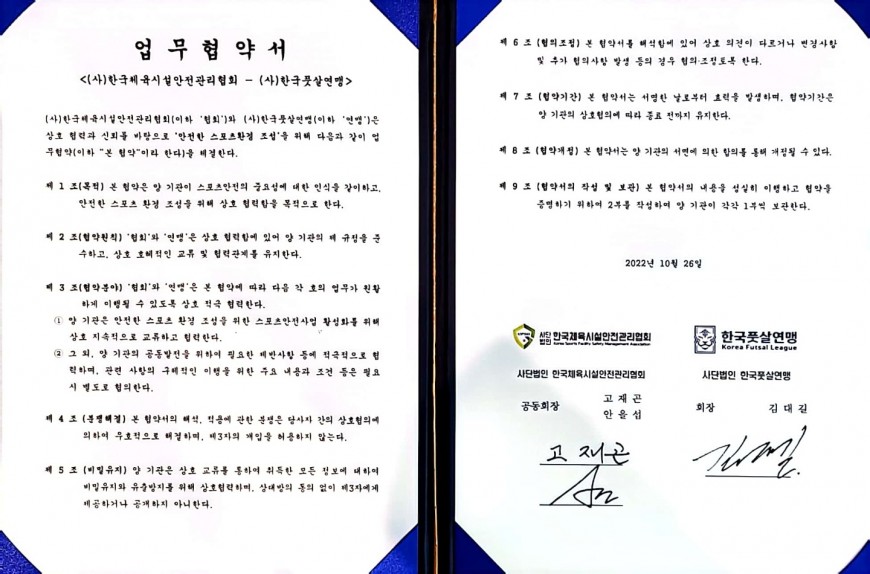 업무협약서
<(사)한국체육시설안전관리협회 - (사)한국풋살연맹>
(사)한국체육시설안전관리협회(이하 '협회')와 (사)한국풋살연맹(이하 '연맹')은
상호 협력과 신뢰를 바탕으로 '안전한 스포츠환경 조성'을 위해 다음과 같이 업
무협약(이하 "본 협약"이라 한다)을 체결한다.
제 1 조(목적) 본 협약은 양 기관이 스포츠안전의 중요성에 대한 인식을 같이하고,
안전한 스포츠 환경 조성을 위해 상호 협력함을 목적으로 한다.
제 2 조(협약원칙) '협회'와 '연맹'은 상호 협력함에 있어 양 기관의 제 규정을 준
수하고, 상호 호혜적인 교류 및 협력관계를 유지한다.
제 3 조(협약분야) '협회'와 '연맹'은 본 협약에 따라 다음 각 호의 업무가 원활
하게 이행될 수 있도록 상호 적극 협력한다.
① 양 기관은 안전한 스포츠 환경 조성을 위한 스포츠안전사업 활성화를 위해
상호 지속적으로 교류하고 협력한다.
② 그 외, 양 기관의 공동발전을 위하여 필요한 제반사항 등에 적극적으로 협
력하며, 관련 사항의 구체적인 이행을 위한 주요 내용과 조건 등은 필요
시 별도로 협의한다.
제 4 조 (분쟁해결) 본 협약서의 해석, 적용에 관한 분쟁은 당사자 간의 상호협의에
의하여 우호적으로 해결하며, 제3자의 개입을 허용하지 않는다.
제 5 조 (비밀유지) 양 기관은 상호 교류를 통하여 취득한 모든 정보에 대하여
비밀유지와 유출방지를 위해 상호협력하며, 상대방의 동의 없이 제3자에게
제공하거나 공개하지 아니한다.
제 6 조 (협의조정) 본 협약서를 해석함에 있어 상호 의견이 다르거나 변경사항
및 추가 협의사항 발생 등의 경우 협의·조정토록 한다.
제 7 조 (협약기간) 본 협약서는 서명한 날로부터 효력을 발생하며, 협약기간은
양 기관의 상호협의에 따라 종료 전까지 유지한다.
제 8 조 (협약개정) 본 협약서는 양 기관의 서면에 의한 합의를 통해 개정될 수 있다.
제 9 조 (협약서의 작성 및 보관) 본 협약서의 내용을 성실히 이행하고 협약을
증명하기 위하여 2부를 작성하여 양 기관이 각각 1부씩 보관한다.
2022년 10월 26일
사단법인 한국체육시설안전관리협회
Korea Sports Facility Safety Management Association
한국풋살연맹
Korea Futsal League
사단법인 한국체육시설안전관리협회
사단법인 한국풋살연맹
공동회장 고재곤
안을섭
회장 김대길
고재곤